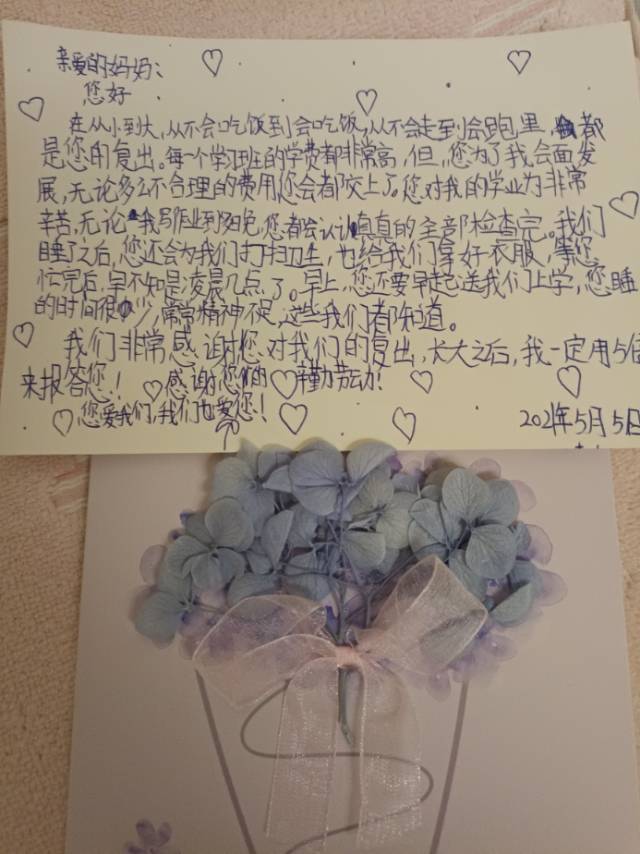 亲爱的妈妈：
您好
在从小到大，从不会吃饭到会吃饭，从不会走到会跑里，都
是您的复出。每一个学习班的学费都非常高，但，您为了我会面发
展，无论多么不合理的费用您会都交上了。您对我的学业为非常
辛苦，无论我写作业到多晚，您都会认认真真的全部检查完。我们
睡了之后，您还会为我们打扫卫生，也给我们拿好衣服，等您
忙完后，早不知是凌晨几点了。早上，您不要早起送我们上学，您睡
的时间很少，常常精神不足，这些我们都知道。
我们非常感谢您对我们的复出，长大之后，我一定用5倍
来报答您！感谢您们的辛勤劳动！
您爱我们，我们也爱您！
2021年5月5日